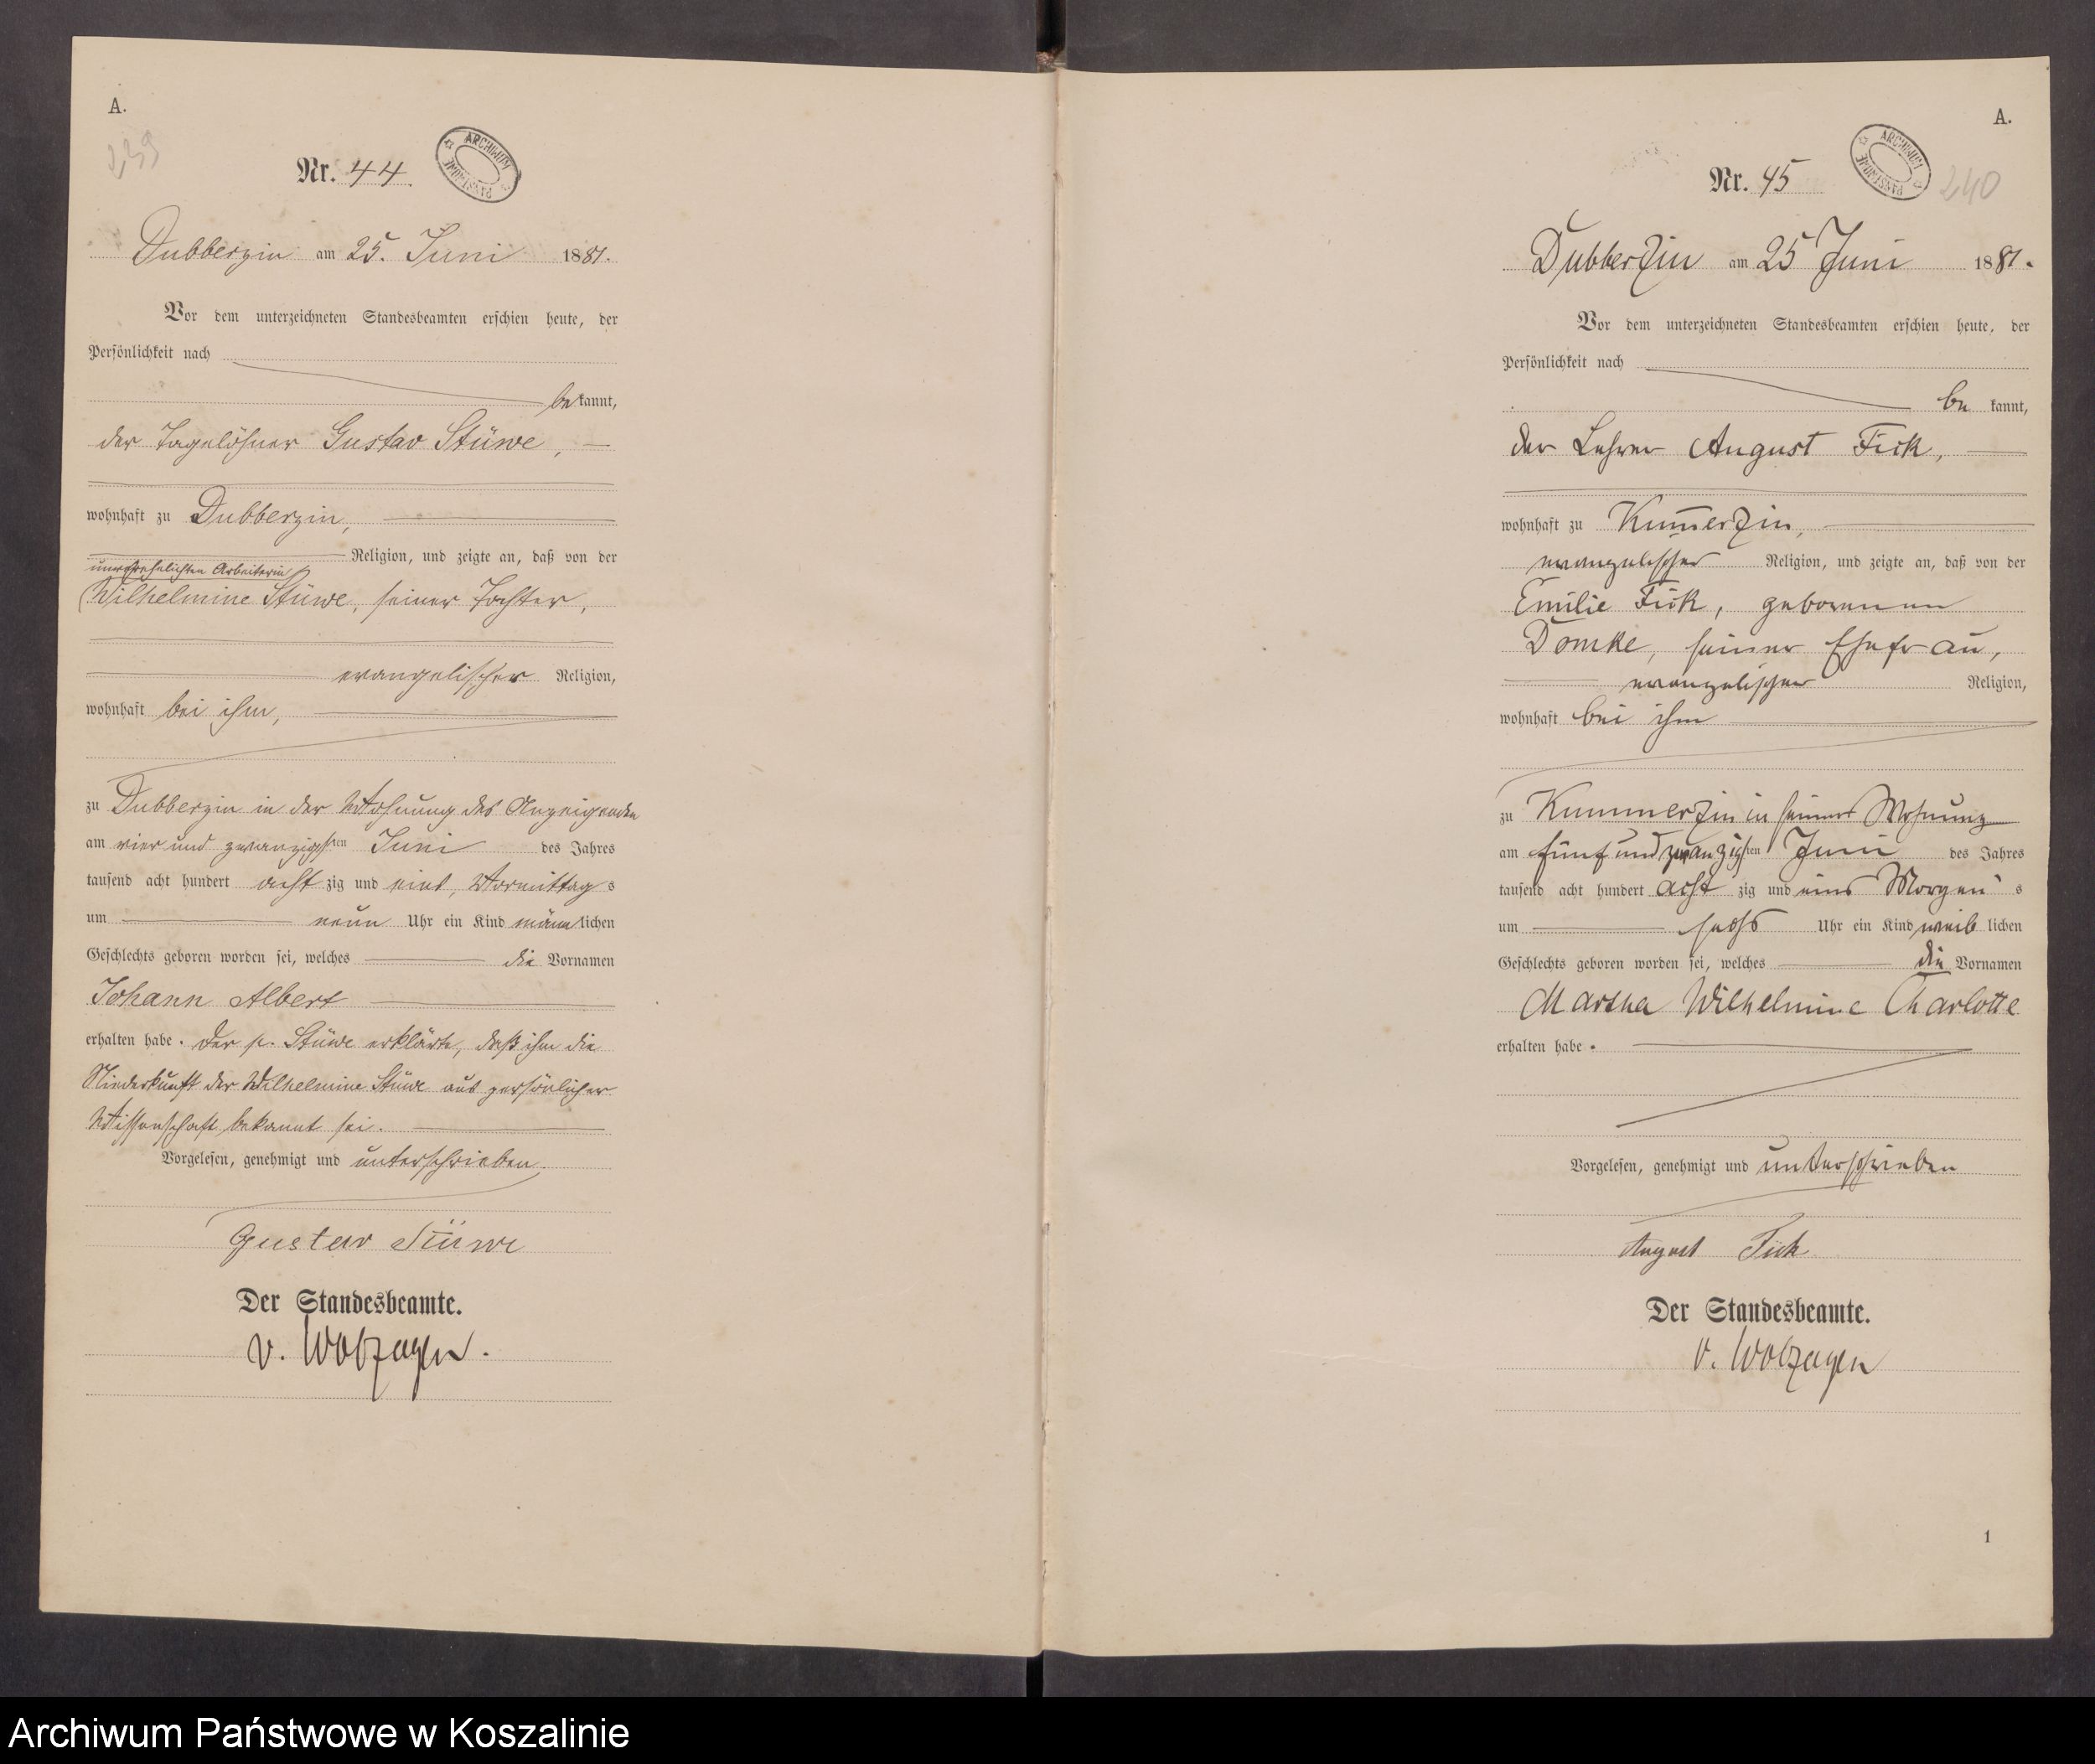 A.
239
Nr. 44.
ARCHIWUM PAŃSTWOWE
Dubberzin am 25. Juni 1881.
Vor dem unterzeichneten Standesbeamten erschien heute, der
Persönlichkeit nach
bekannt,
der Tagelöhner Gustav Stüwe,
wohnhaft zu Dubberzin,
Religion, und zeigte an, daß von der
unverehelichten Arbeiterin
Wilhelmine Stüwe, seiner Tochter,
evangelischer Religion,
wohnhaft bei ihm,
zu Dubberzin in der Wohnung des Anzeigenden
am vier und zwanzigsten Juni des Jahres
tausend acht hundert achtzig und eins, Vormittags
um neun Uhr ein Kind männlichen
Geschlechts geboren worden sei, welches die Vornamen
Johann Albert
erhalten habe. Der p. Stüwe erklärte, daß ihm die
Niederkunft der Wilhelmine Stüwe aus persönlicher
Wissenschaft bekannt sei.
Vorgelesen, genehmigt und unterschrieben.
Gustav Stüwe
Der Standesbeamte.
v. Wolzogen.
A.
Nr. 45
ARCHIWUM PAŃSTWOWE
240
Dubberzin am 25 Juni 1881.
Vor dem unterzeichneten Standesbeamten erschien heute, der
Persönlichkeit nach
be kannt,
der Lehrer August Fick,
wohnhaft zu Kum̄erzin,
evangelischer Religion, und zeigte an, daß von der
Emilie Fick, geborenen
Domke, seiner Ehefrau,
evangelischer Religion,
wohnhaft bei ihm
zu Kummerzin in seiner Wohnung
am fünf und zwanzigsten Juni des Jahres
tausend acht hundert achtzig und eins Morgens
um sechs Uhr ein Kind weiblichen
Geschlechts geboren worden sei, welches die Vornamen
Martha Wilhelmine Charlotte
erhalten habe.
Vorgelesen, genehmigt und unterschrieben
August Fick
Der Standesbeamte.
v. Wolzogen
1
Archiwum Państwowe w Koszalinie